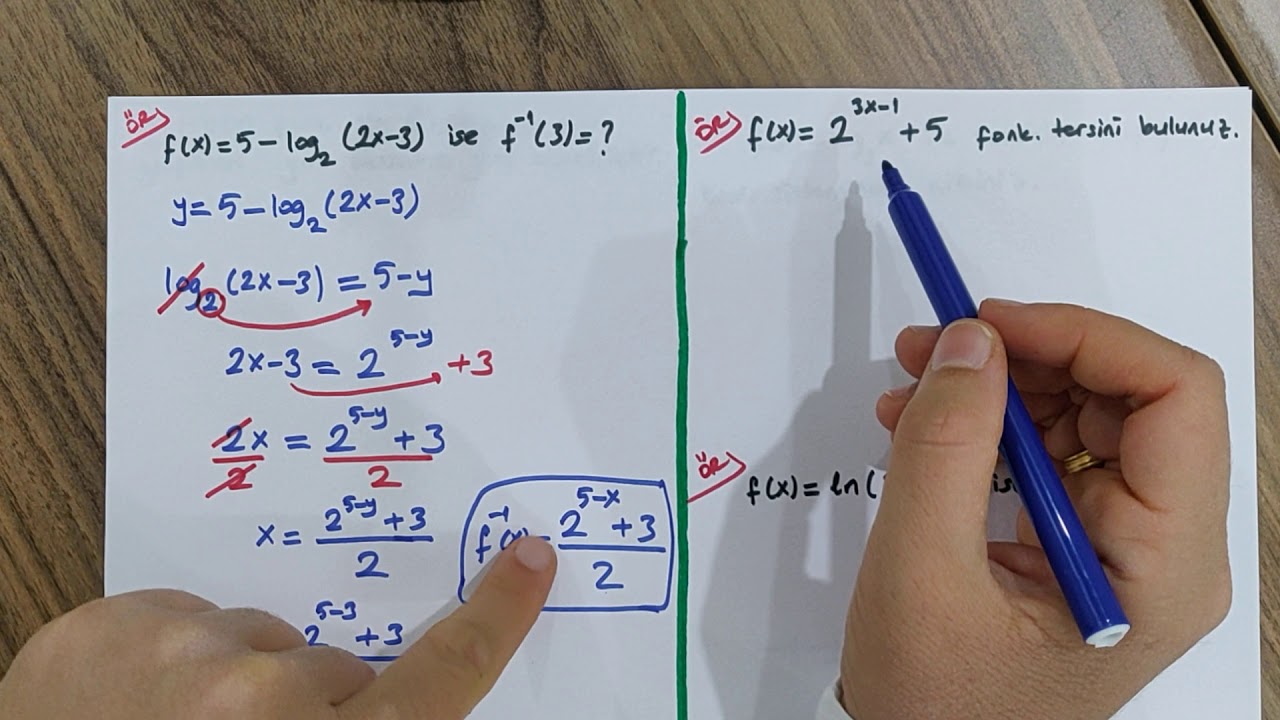 ÖR
f(x) = 5 - log₂ (2x-3) ise f⁻¹(3) = ?
y = 5 - log₂ (2x-3)
log₂ (2x-3) = 5-y
2x-3 = 2^(5-y) +3
2x/2 = (2^(5-y) + 3)/2
x = (2^(5-y) + 3)/2
f⁻¹(x) = (2^(5-x) + 3)/2
2^(5-3) + 3
ÖR
f(x) = 2^(3x-1) + 5 fonk. tersini bulunuz.
ÖR
f(x) = ln(